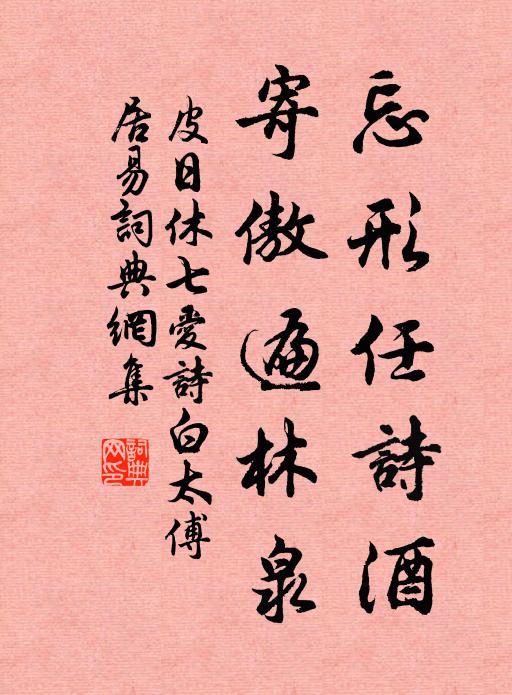 忘形任詩酒
寄傲遍林泉
皮日休七愛詩白太傅
居易詞典網集
詞典网印